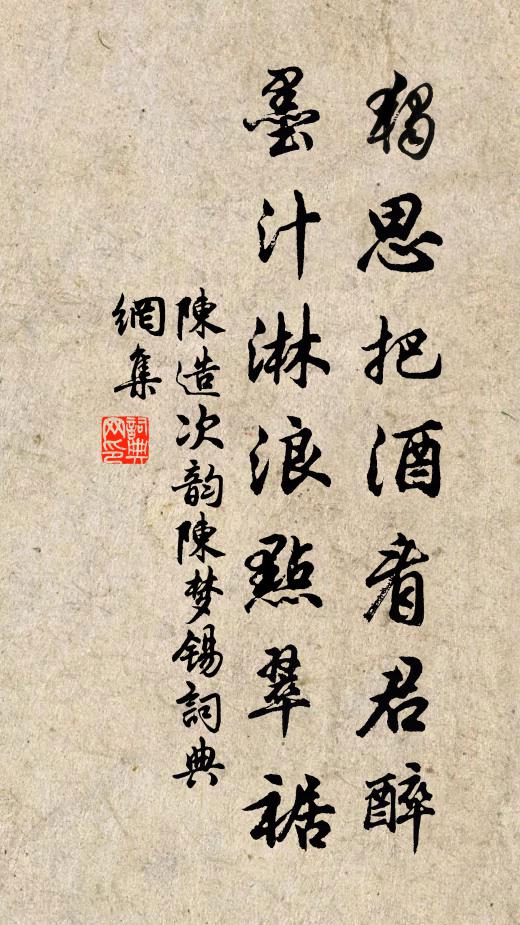 獨思把酒看君醉
墨汁淋浪點翠裾
陳造次韵陳梦锡詞典
網集
詞典网印